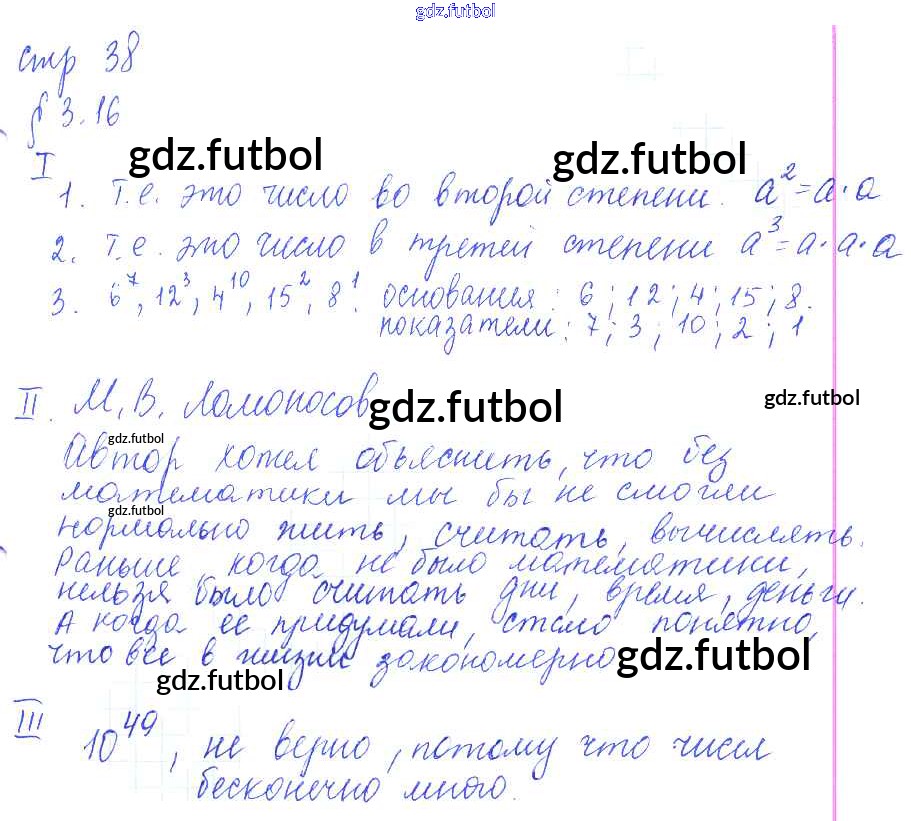 gdz.futbol
стр 38
§ 3.16
gdz.futbol gdz.futbol
I
1. Т.е. это число во второй степени. a² = a · a
2. Т.е. это число в третей степени a³ = a · a · a
3. 6⁷, 12³, 4¹⁰, 15², 8¹. основания: 6; 12; 4; 15; 8.
показатели: 7; 3; 10; 2; 1
II. М. В. Ломоносов gdz.futbol gdz.futbol
gdz.futbol
Автор хотел объяснить, что без
математики мы бы не смогли
gdz.futbol
нормально жить, считать, вычислять.
Раньше, когда не было математики,
нельзя было считать дни, время, деньги.
А когда ее придумали, стало понятно,
что все в жизни закономерно gdz.futbol
gdz.futbol
III
10⁴⁹, не верно, потому что чисел
бесконечно много.